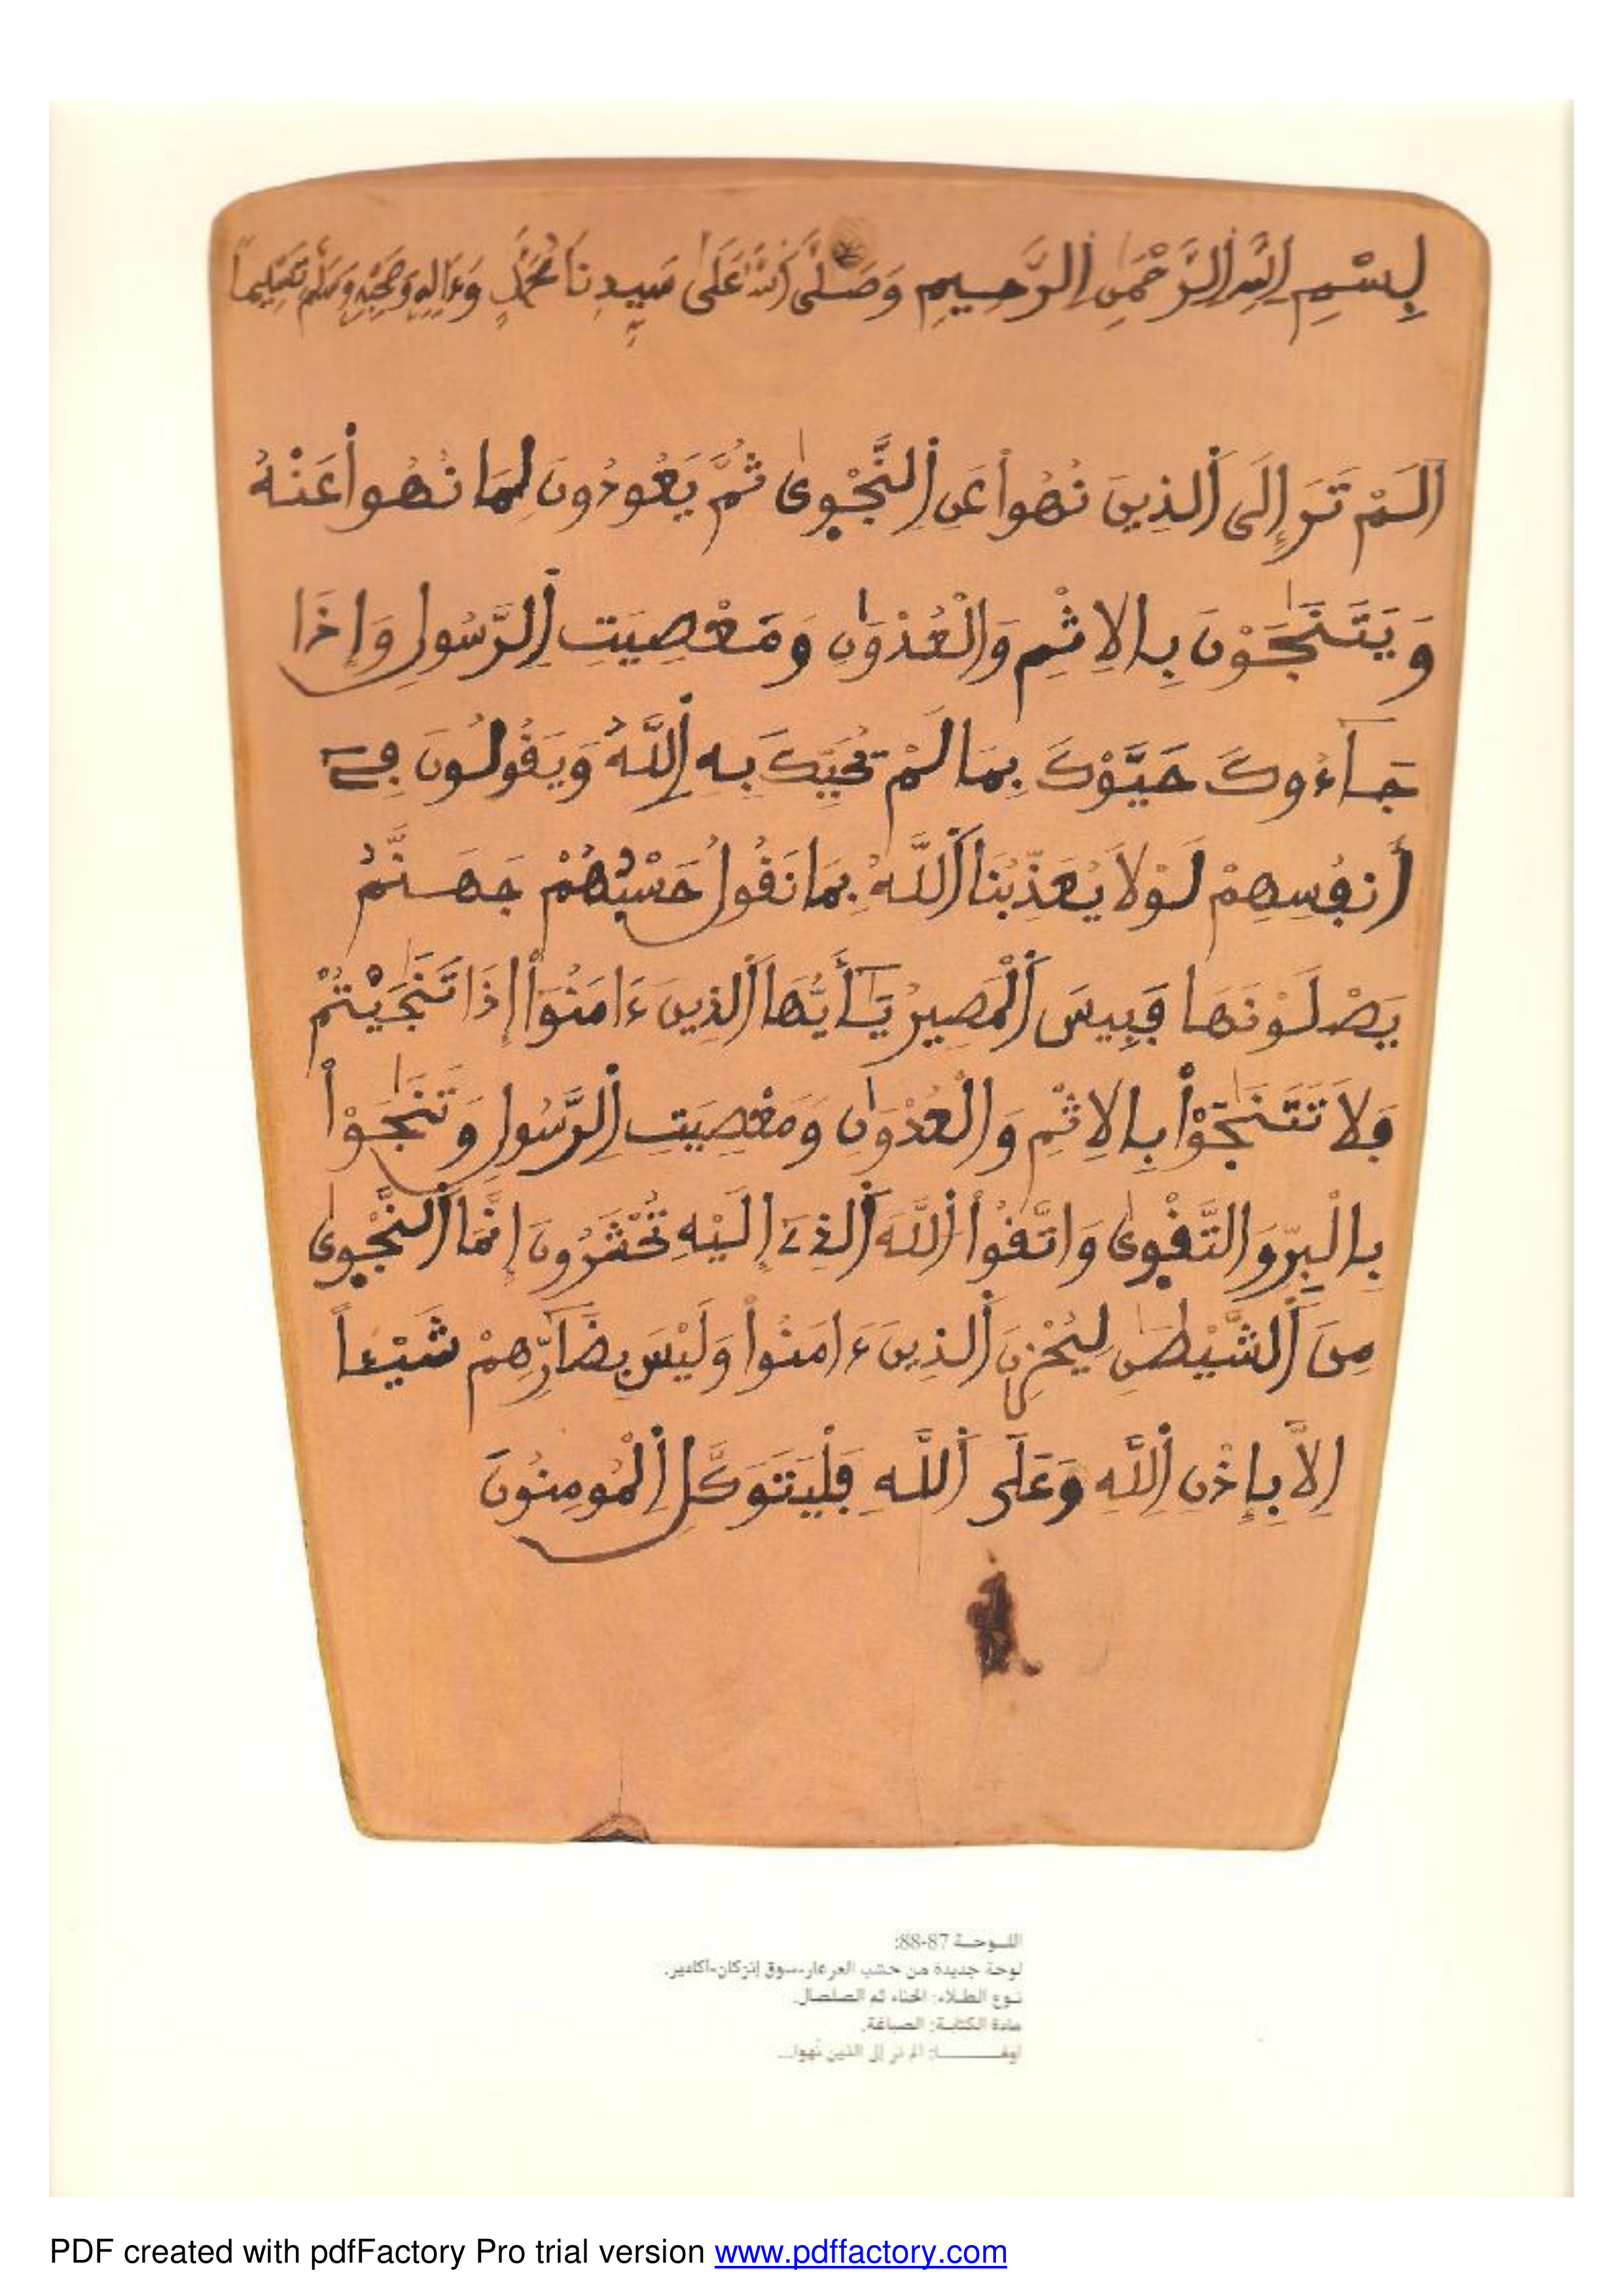 بِسْمِ اللَّهِ الرَّحْمَٰنِ الرَّحِيمِ وَصَلَّى اللَّهُ عَلَىٰ سَيِّدِنَا مُحَمَّدٍ وَءَالِهِ وَصَحْبِهِ وَسَلَّمَ تَسْلِيماً
اَلَمْ تَرَ إِلَى اَلذِينَ نُهُواْ عَنِ اِلنَّجْوٜىٰ ثُمَّ يَعُودُونَ لِمَا نُهُواْ عَنْهُ
وَيَتَنَٰجَوْنَ بِالِاثْمِ وَالْعُدْوَٰنِ وَمَعْصِيَتِ اِلرَّسُولِ وَإِذَا
جَآءُوكَ حَيَّوْكَ بِمَا لَمْ يُحَيِّكَ بِهِ اِللَّهُ وَيَقُولُونَ فِےٓ
أَنفُسِهِمْ لَوْلَا يُعَذِّبُنَا اَللَّهُ بِمَا نَقُولُ حَسْبُهُمْ جَهَنَّمُ
يَصْلَوْنَهَا فَبِيسَ اَلْمَصِيرُ يَٰٓأَيُّهَا اَلذِينَ ءَامَنُوٓاْ إِذَا تَنَٰجَيْتُمْ
فَلَا تَتَنَٰجَوْاْ بِالِاثْمِ وَالْعُدْوَٰنِ وَمَعْصِيَتِ اِلرَّسُولِ وَتَنَٰجَوْاْ
بِالْبِرِّ وَالتَّقْوٜىٰ وَاتَّقُواْ اُللَّهَ اَلذِےٓ إِلَيْهِ تُحْشَرُونَ إِنَّمَا اَلنَّجْوٜىٰ
مِنَ اَلشَّيْطَٰنِ لِيُحْزِنَ اَلذِينَ ءَامَنُواْ وَلَيْسَ بِضَآرِّهِمْ شَيْـٔاً
اِلَّا بِإِذْنِ اِللَّهِ وَعَلَى اَللَّهِ فَلْيَتَوَكَّلِ اِلْمُومِنُونَ
اللـوحـة 87-88:
لوحة جديدة من خشب العرعار-سوق إنزكان-أكادير.
نـوع الطـلاء: الحناء ثم الصلصال.
مادة الكتابـة: الصباغة.
: ألم تر إلى الذين نُهوا...
PDF created with pdfFactory Pro trial version www.pdffactory.com